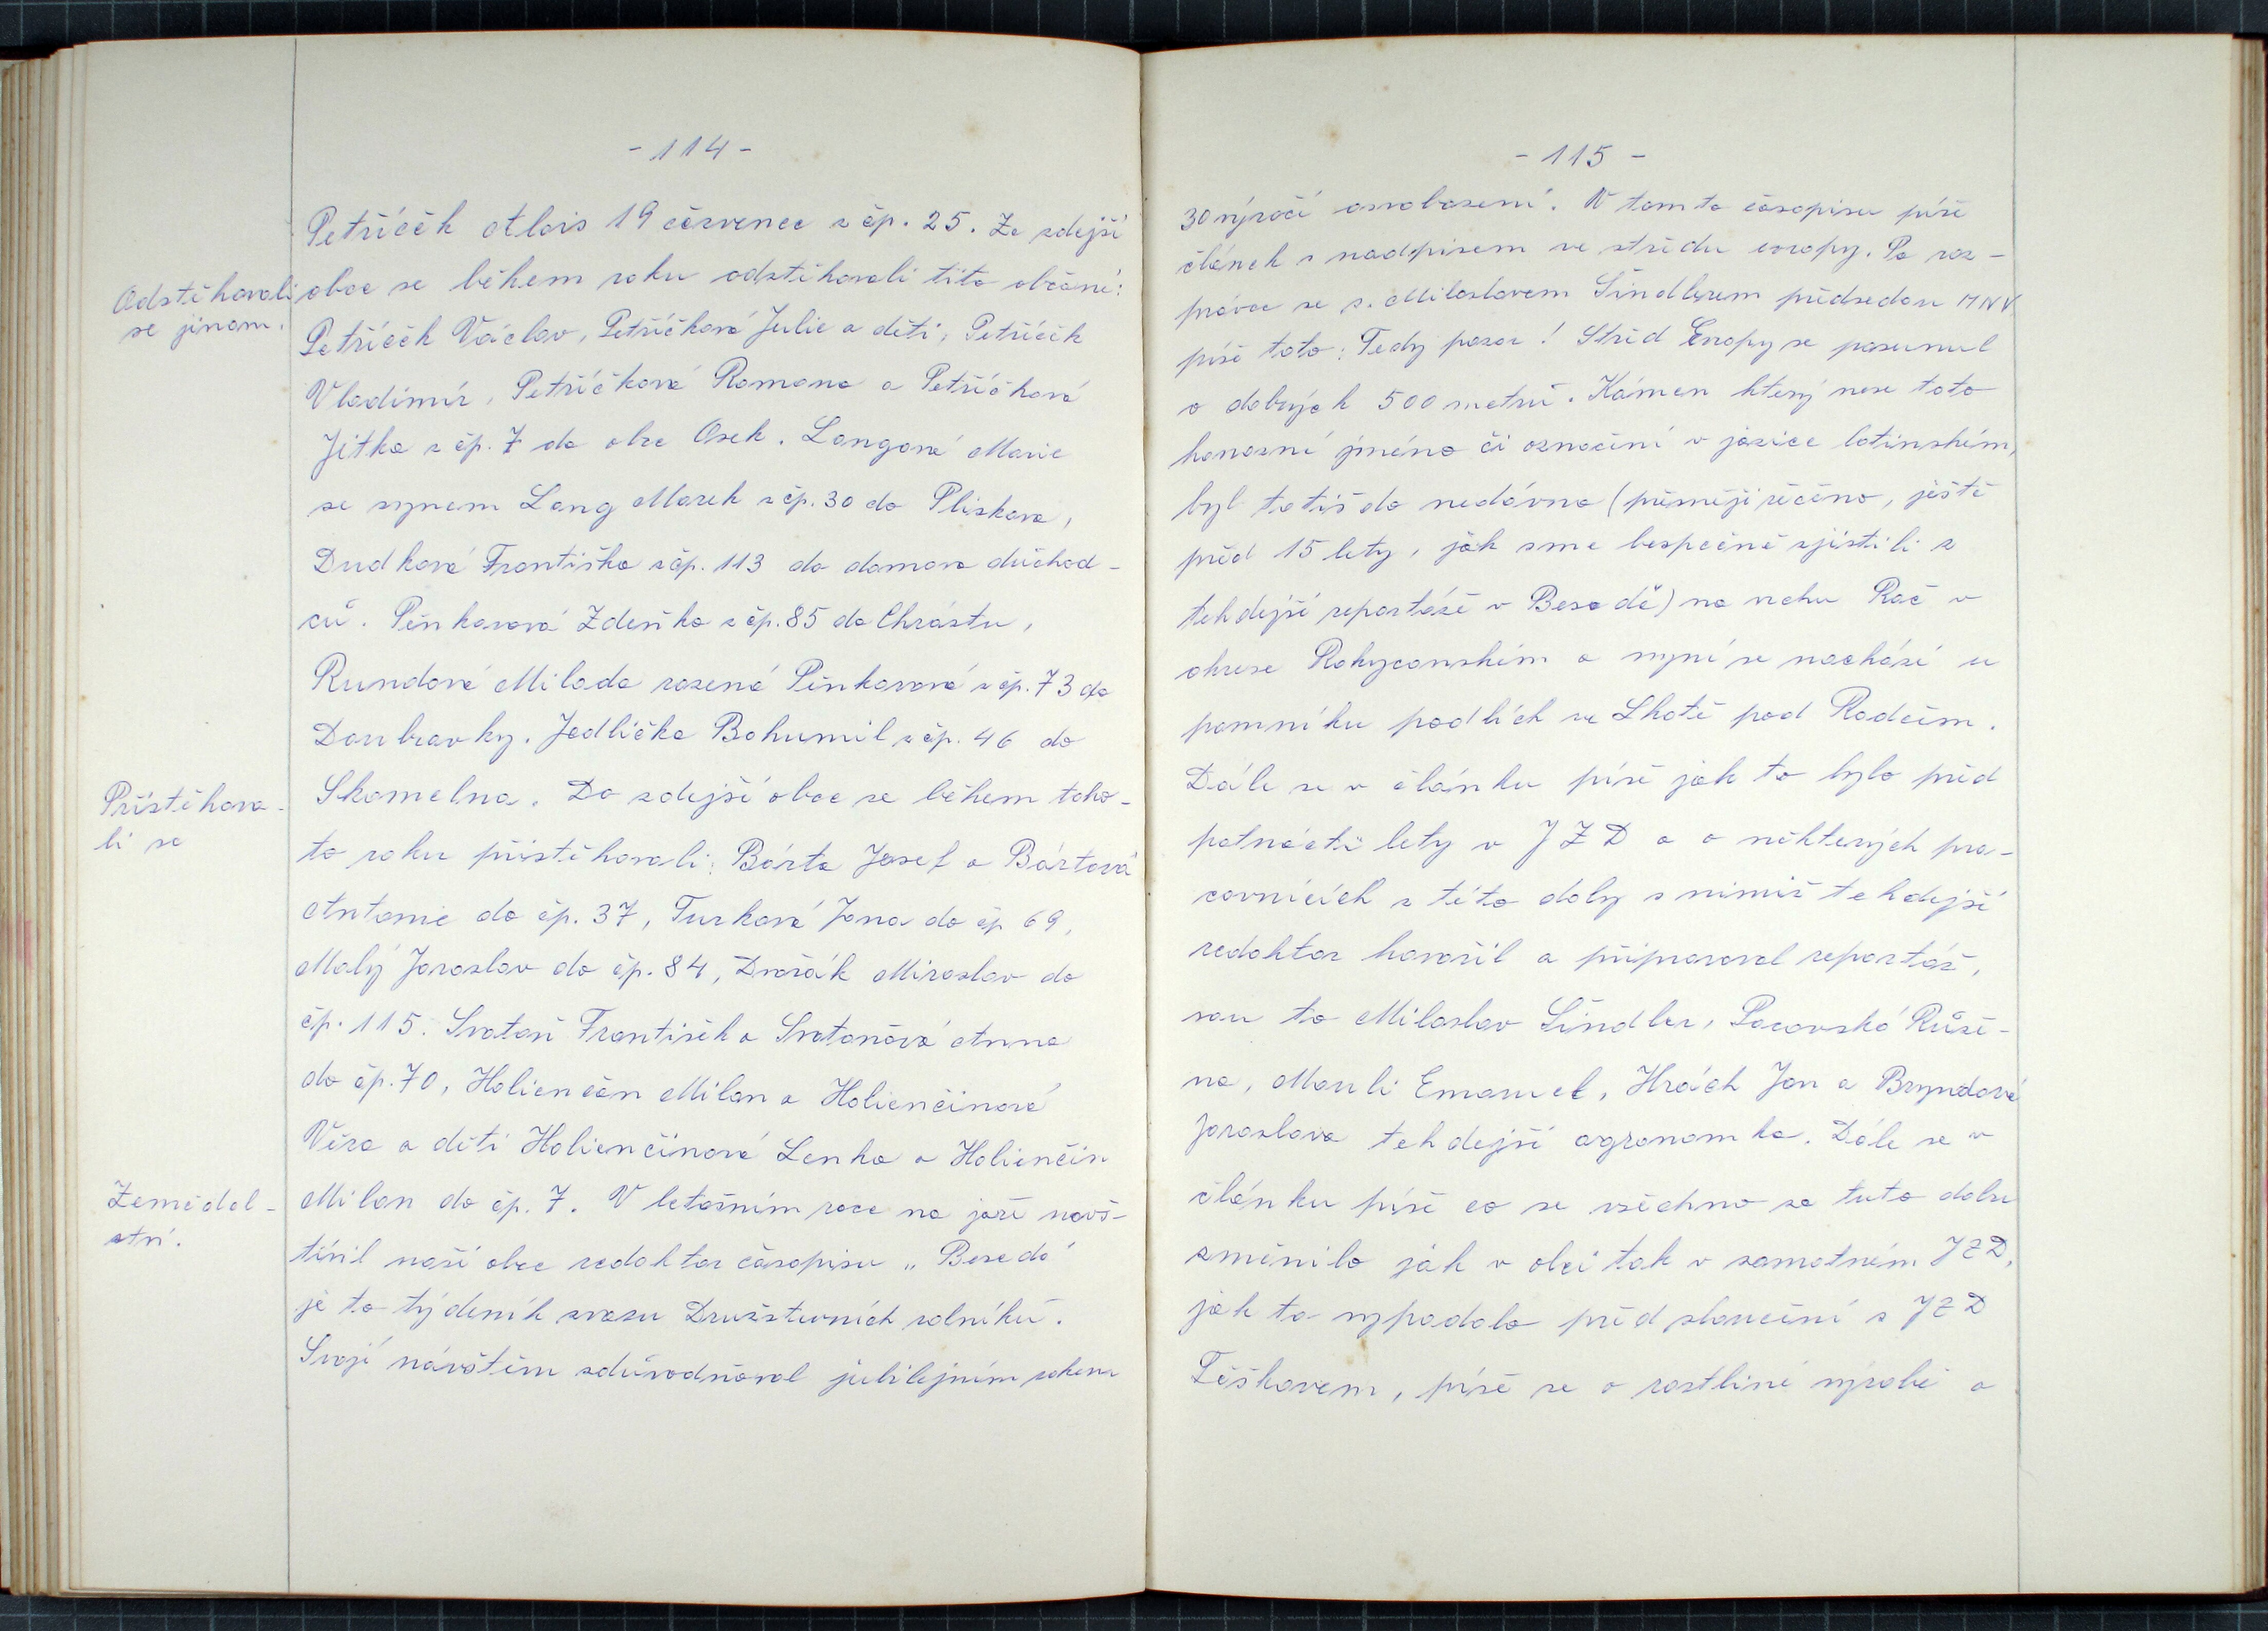 - 114 -
Petříček Alois 19 červenec z čp. 25. Ze zdejší
Odstěhovali
se jinam.
obce se během roku odstěhovali tito občané:
Petříček Václav, Petříčková Julie a děti, Petříček
Vladimír, Petříčková Romana a Petříčková
Jitka z čp. 7 do obce Osek. Langová Marie
se synem Lang Marek z čp. 30 do Plískova,
Dudková Františka z čp. 113 do domova důchod-
ců. Pěnkavová Zdeňka z čp. 85 do Chrástu,
Rundová Milada rozená Pěnkavová z čp. 73 do
Doubravky. Jedlička Bohumil z čp. 46 do
Přistěhova-
li se
Skomelna. Do zdejší obce se během toho-
to roku přistěhovali: Bárta Josef a Bártová
Antonie do čp. 37, Turková Jana do čp 69,
Malý Jaroslav do čp. 84, Dvořák Miroslav do
čp. 115. Svatoň František a Svatoňová Anna
do čp. 70, Holienčin Milan a Holienčinová
Věra a děti Holienčinová Lenka a Holienčin
Zeměděl-
ství.
Milan do čp. 7. V letošním roce na jaře navš-
tívil naší obce redaktor časopisu „Beseda"
je to týdeník svazu Družstevních rolníků.
Svojí návštěvu zdůvodňoval jubilejním rokem
- 115 -
30 výročí osvobození. V tomto časopisu píše
článek s nadpisem ve středu evropy. Po roz-
pravce se s. Miloslavem Šindlerem předsedou MNV
píše toto: Tedy pozor! Střed Evropy se posunul
o dobrých 500 metrů. Kámen který nese toto
honosné jméno či označení v jazice latinském,
byl totiš do nedávna (přesněji řečeno, ještě
před 15 lety, jak sme bezpečně zjistili z
tehdejší reportáže v Besedě) na vrchu Rač v
okrese Rokycanském a nyní se nachází u
pomníku padlích ve Lhotě pod Radčem.
Dále se v článku píše jak to bylo před
patnácti lety v JZD a o některých pra-
covnících z této doby s nimiž tehdejší
redaktor hovořil a připravoval reportáž,
sou to Miloslav Šindler, Pacovská Růže-
na, Mauli Emanuel, Hrách Jan a Bryndová
Jaroslava tehdejší agronomka. Dále se v
článku píše co se všechno za tuto dobu
změnilo jak v obci tak v samotném JZD,
jak to vypadalo před sloučení s JZD
Těškovem, píše se o rostliné výrobě a